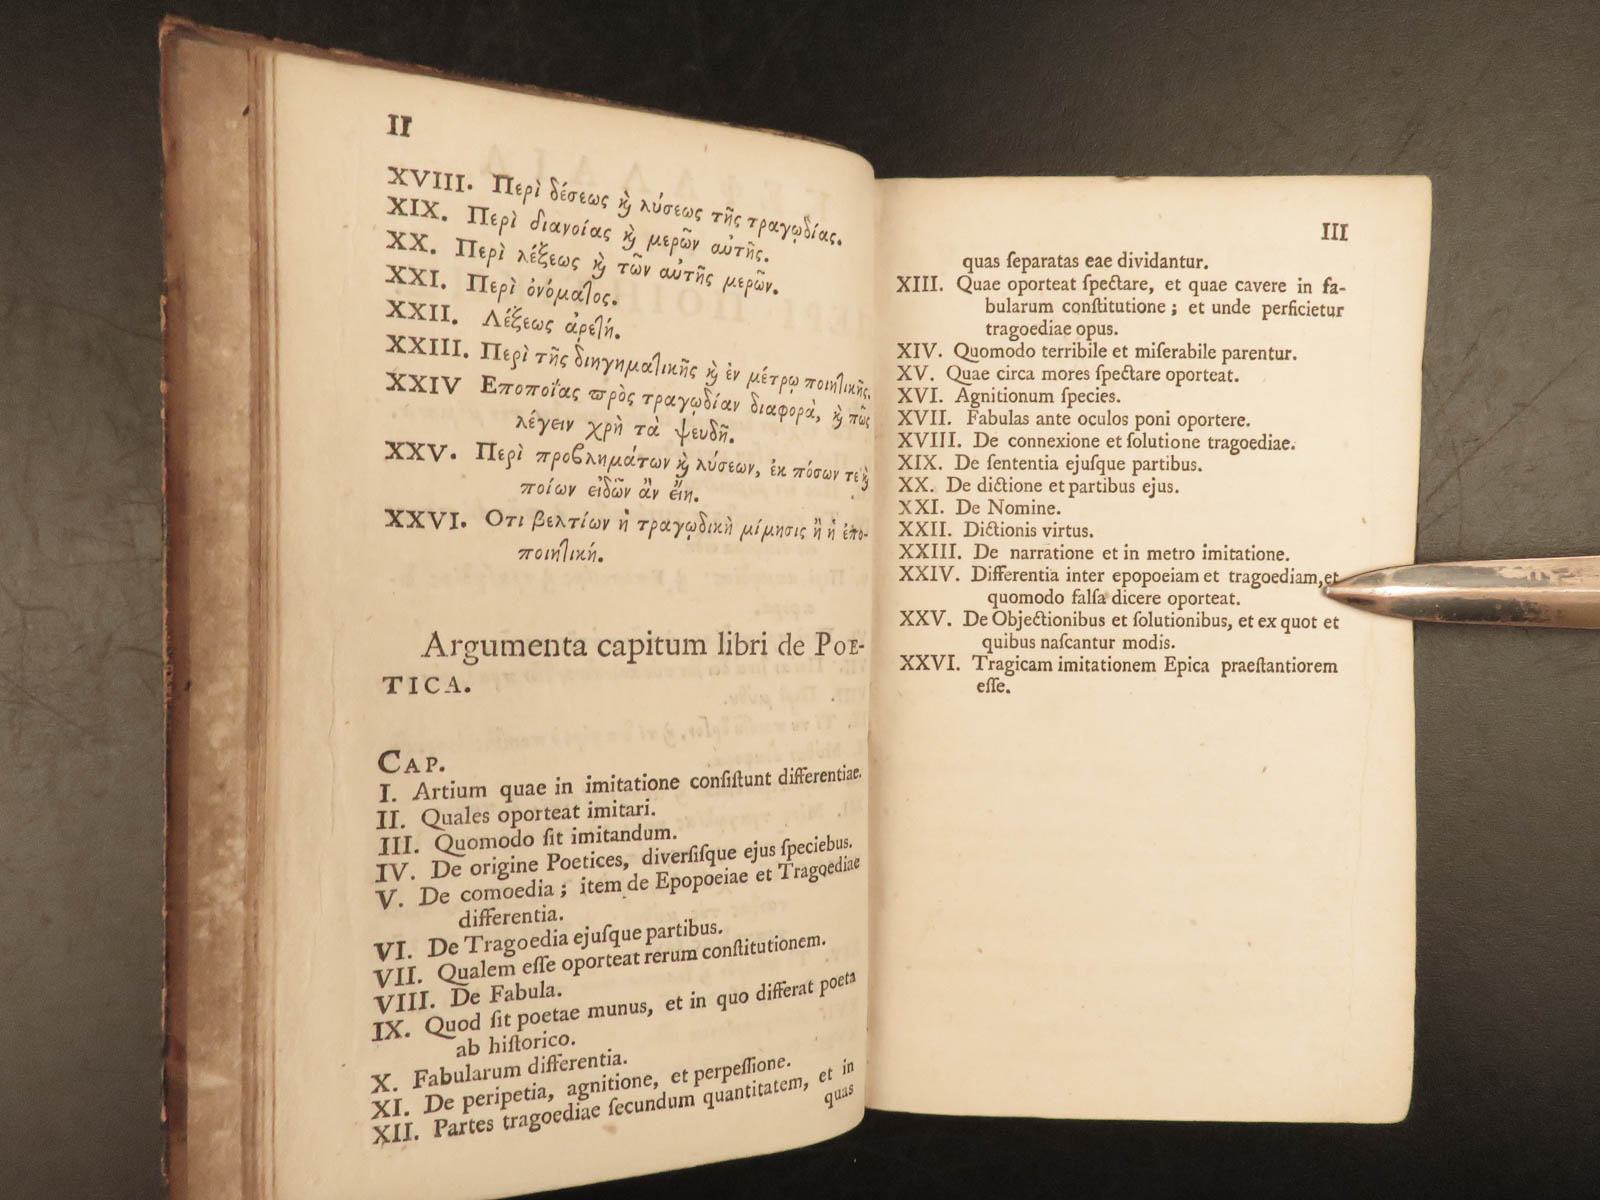 II
XVIII. Περὶ δέσεως ϗ λύσεως τῆς τραγῳδίας.
XIX. Περὶ διανοίας ϗ μερῶν αὐτῆς.
XX. Περὶ λέξεως ϗ τῶν αὐτῆς μερῶν.
XXI. Περὶ ὀνόματος.
XXII. Λέξεως ἀρετή.
XXIII. Περὶ τῆς διηγηματικῆς ϗ ἐν μέτρῳ ποιητικῆς.
XXIV Εποποΐας πρὸς τραγῳδίαν διαφορὰ, ϗ πῶς
λέγειν χρὴ τὰ ψευδῆ.
XXV. Περὶ προβλημάτων ϗ λύσεων, ἐκ πόσων τε ϗ
ποίων εἰδῶν ἂν εἴη.
XXVI. Οτι βελτίων ἡ τραγῳδικὴ μίμησις ἢ ἡ ἐπο-
ποιητική.
Argumenta capitum libri de POE-
TICA.
CAP.
I. Artium quae in imitatione conſiſtunt differentiae.
II. Quales oporteat imitari.
III. Quomodo ſit imitandum.
IV. De origine Poetices, diverſiſque ejus ſpeciebus.
V. De comoedia; item de Epopoeiae et Tragoediae
differentia.
VI. De Tragoedia ejuſque partibus.
VII. Qualem eſſe oporteat rerum conſtitutionem.
VIII. De Fabula.
IX. Quod ſit poetae munus, et in quo differat poeta
ab hiſtorico.
X. Fabularum differentia.
XI. De peripetia, agnitione, et perpeſſione.
XII. Partes tragoediae ſecundum quantitatem, et in
quas
III
quas ſeparatas eae dividantur.
XIII. Quae oporteat ſpectare, et quae cavere in fa-
bularum conſtitutione; et unde perficietur
tragoediae opus.
XIV. Quomodo terribile et miſerabile parentur.
XV. Quae circa mores ſpectare oporteat.
XVI. Agnitionum ſpecies.
XVII. Fabulas ante oculos poni oportere.
XVIII. De connexione et ſolutione tragoediae.
XIX. De ſententia ejuſque partibus.
XX. De dictione et partibus ejus.
XXI. De Nomine.
XXII. Dictionis virtus.
XXIII. De narratione et in metro imitatione.
XXIV. Differentia inter epopoeiam et tragoediam, et
quomodo falſa dicere oporteat.
XXV. De Objectionibus et ſolutionibus, et ex quot et
quibus naſcantur modis.
XXVI. Tragicam imitationem Epica praeſtantiorem
eſſe.